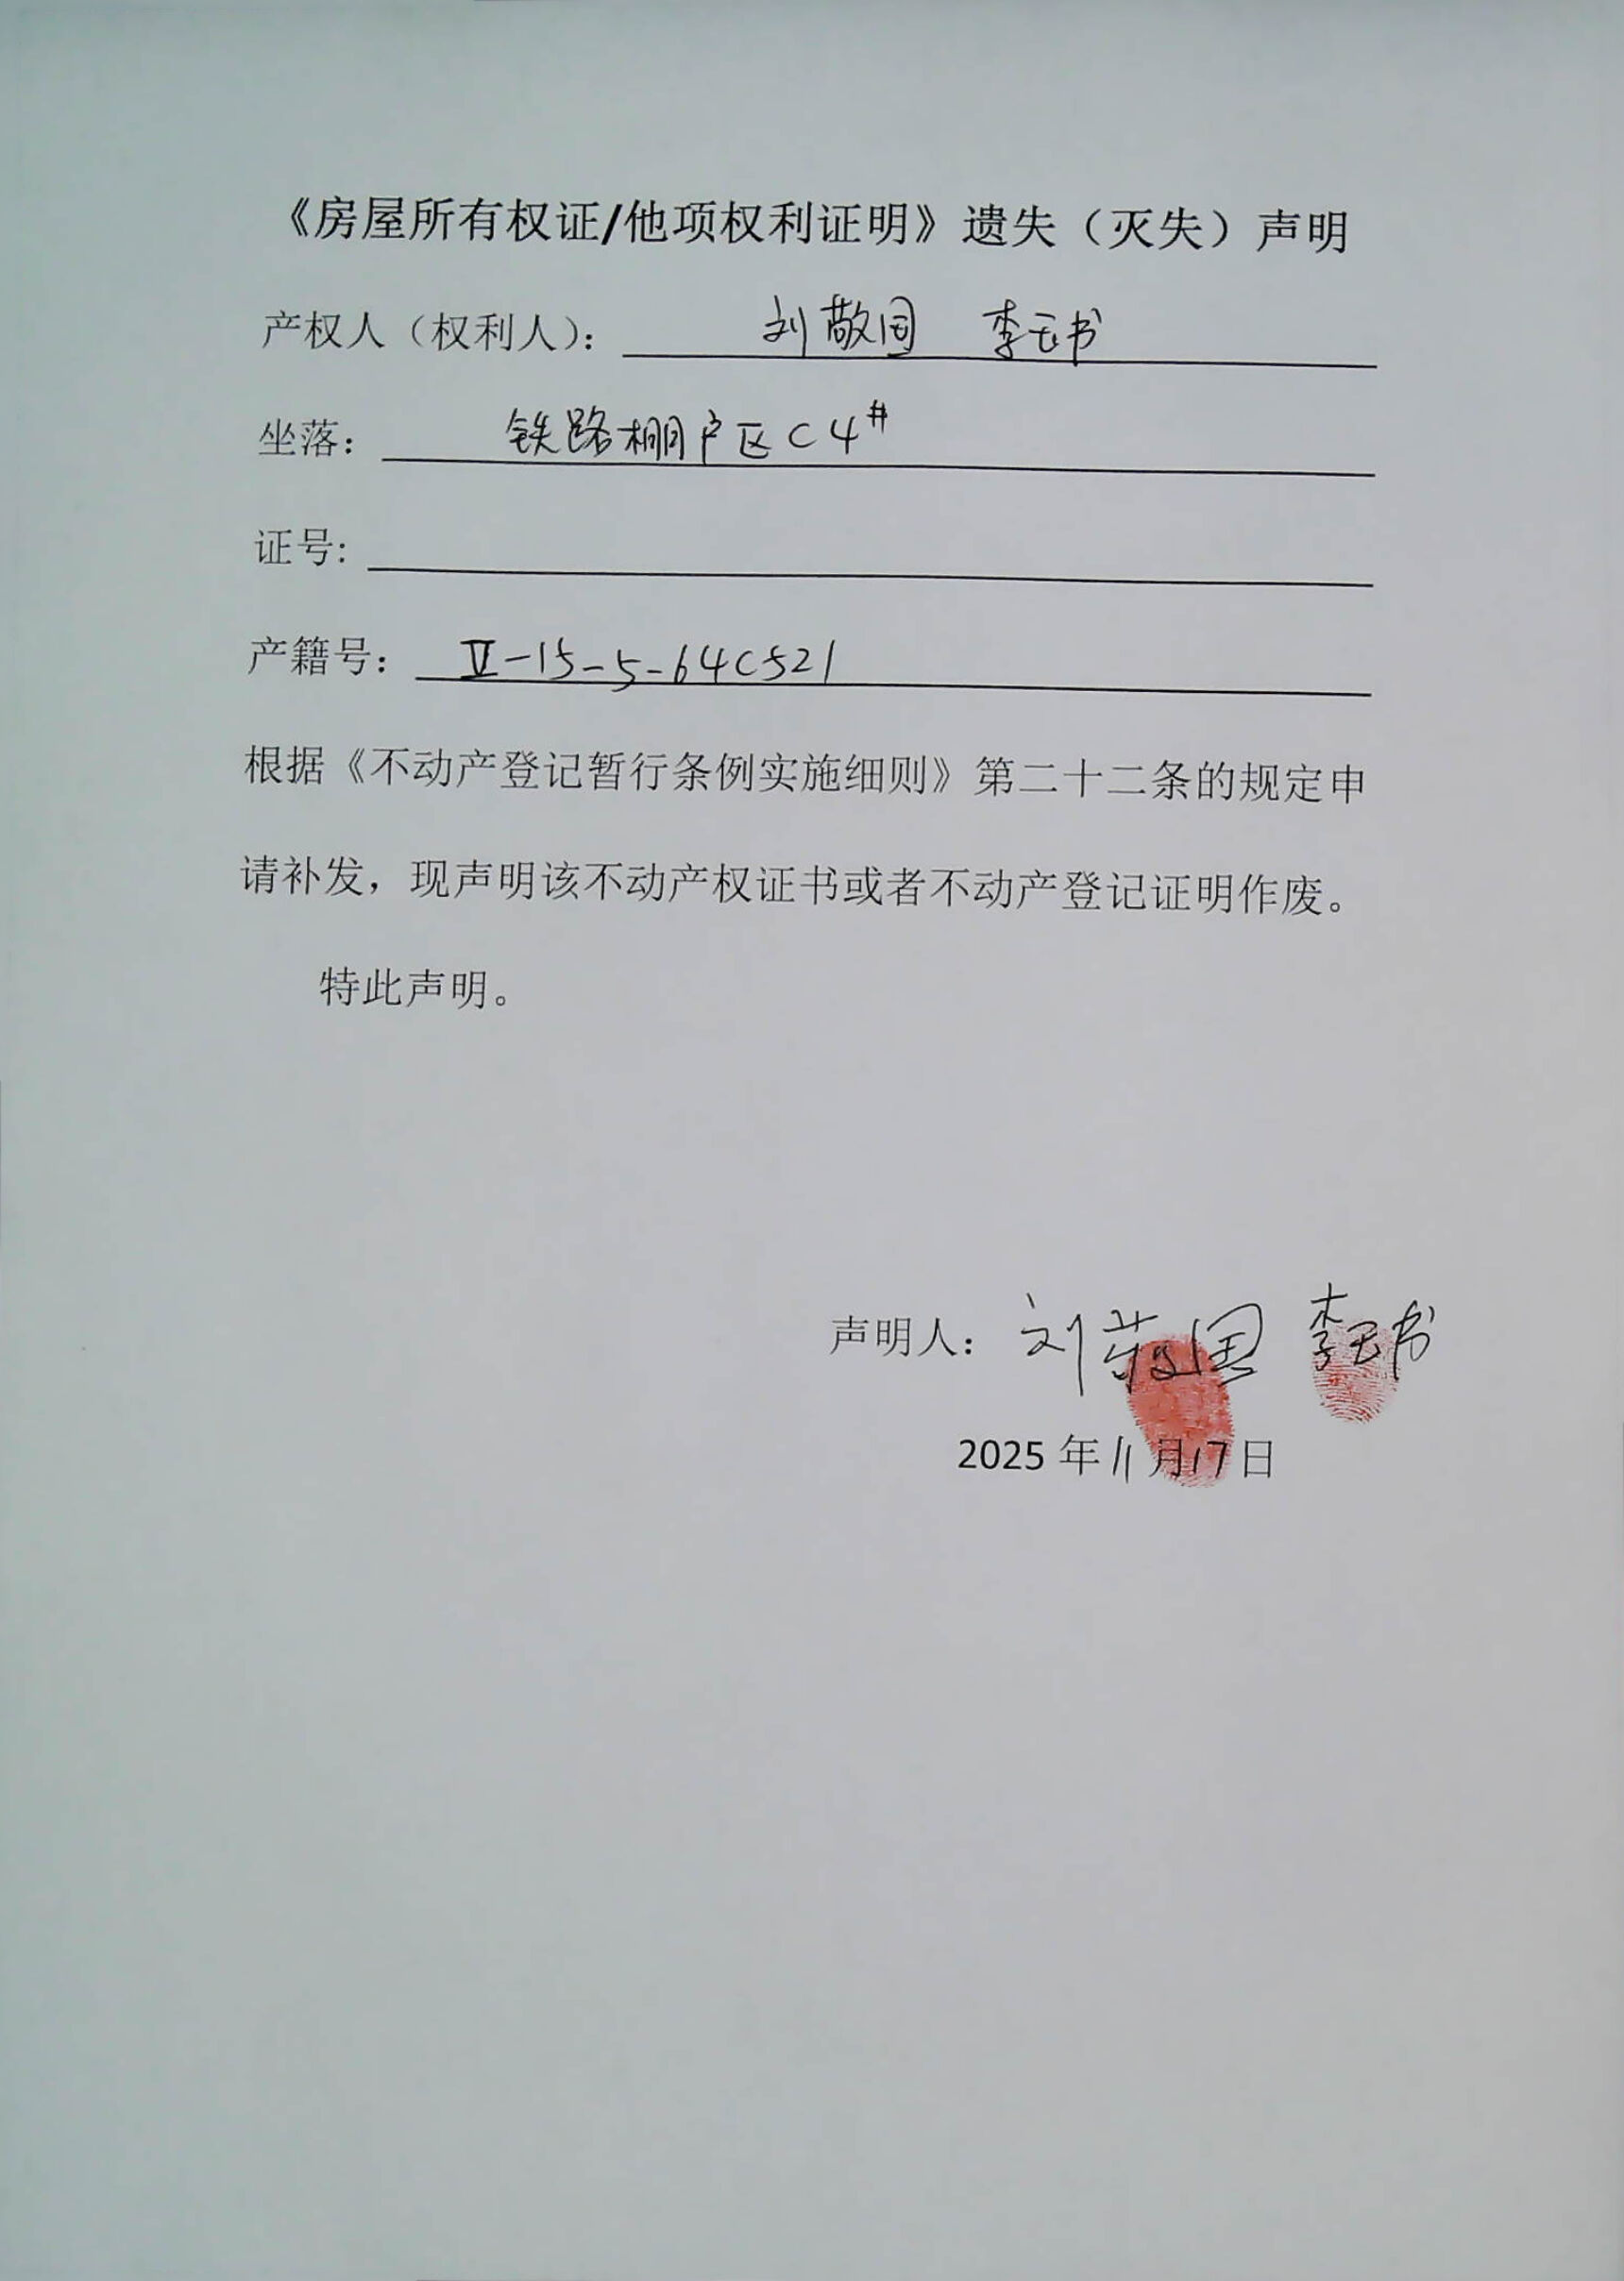 《房屋所有权证/他项权利证明》遗失（灭失）声明
产权人（权利人）： 刘敬国 李玉书
坐落： 铁路棚户区C4#
证号:
产籍号： Ⅱ-15-5-64C521
根据《不动产登记暂行条例实施细则》第二十二条的规定申
请补发，现声明该不动产权证书或者不动产登记证明作废。
特此声明。
声明人： 刘敬国 李玉书
2025 年 11 月 17 日